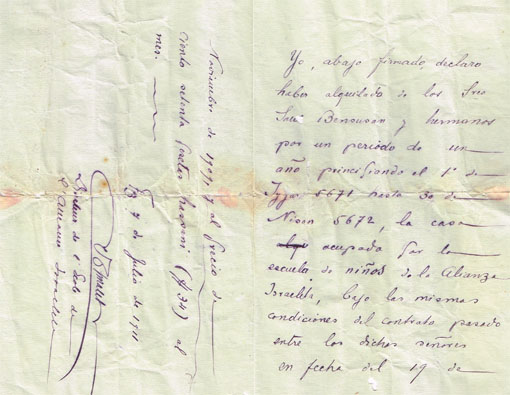 Yo, abajo firmado, declaro
haber alquilado de los Sres
Bensusan y hermanos
por un periodo de un
año principiando el 1º de
5671 hasta 30 de
Nisan 5672, la casa
ocupada por la
escuela de niños de la Alianza
Israelita, bajo las mismas
condiciones del contrato pasado
entre los dichos señores
en fecha del 19 de
Noviembre de 1909, y al precio de
ciento setenta pesetas hassani al
mes.
7 de Julio de 1911